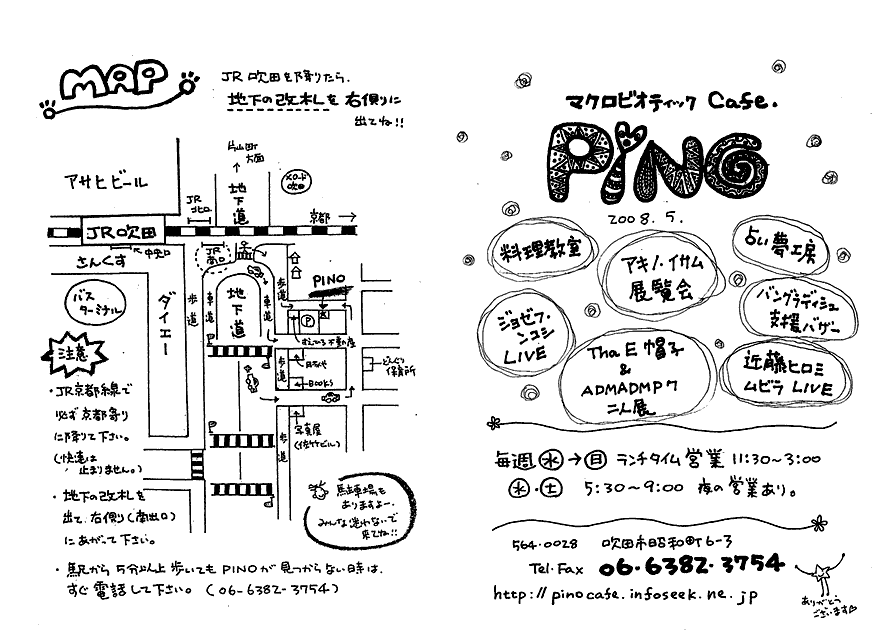 MAP
JR 吹田を降りたら、
地下の改札を右側に
出てね!!
片山町
方面
アサヒビール
地下道
JR
北口
京都 →
JR吹田
中央口
JR
南口
さんくす
バス
ターミナル
ダイエー
歩道
車道
地下道
車道
歩道
PINO
P
不動産
歩道
BOOKS
どんぐり
保育所
写真屋
(佐竹ビル)
歩道
注意
・JR京都線で
必ず京都寄り
に降りて下さい。
(快速は
止まりません。)
・地下の改札を
出て、右側(南出口)
にあがって下さい。
・駅から5分以上歩いてもPINOが見つからない時は、
すぐ電話して下さい。(06-6382-3754)
駐車場も
ありますよー。
みんな迷わないで
来てね!!
マクロビオティック Cafe.
PiNO
2008. 5.
料理教室
アキノ・イサム
展覧会
占い夢工房
ジョゼフ・
ンコシ
LIVE
バングラディシュ
支援バザー
Tha E 帽子
&
ADMADMPク
二人展
近藤ヒロミ
ムビラ LIVE
毎週 水→日 ランチタイム営業 11:30~3:00
水・土 5:30~9:00 夜の営業あり。
564-0028 吹田市昭和町6-3
Tel・Fax 06・6382・3754
http://pinocafe.infoseek.ne.jp
ありがとう
ございます